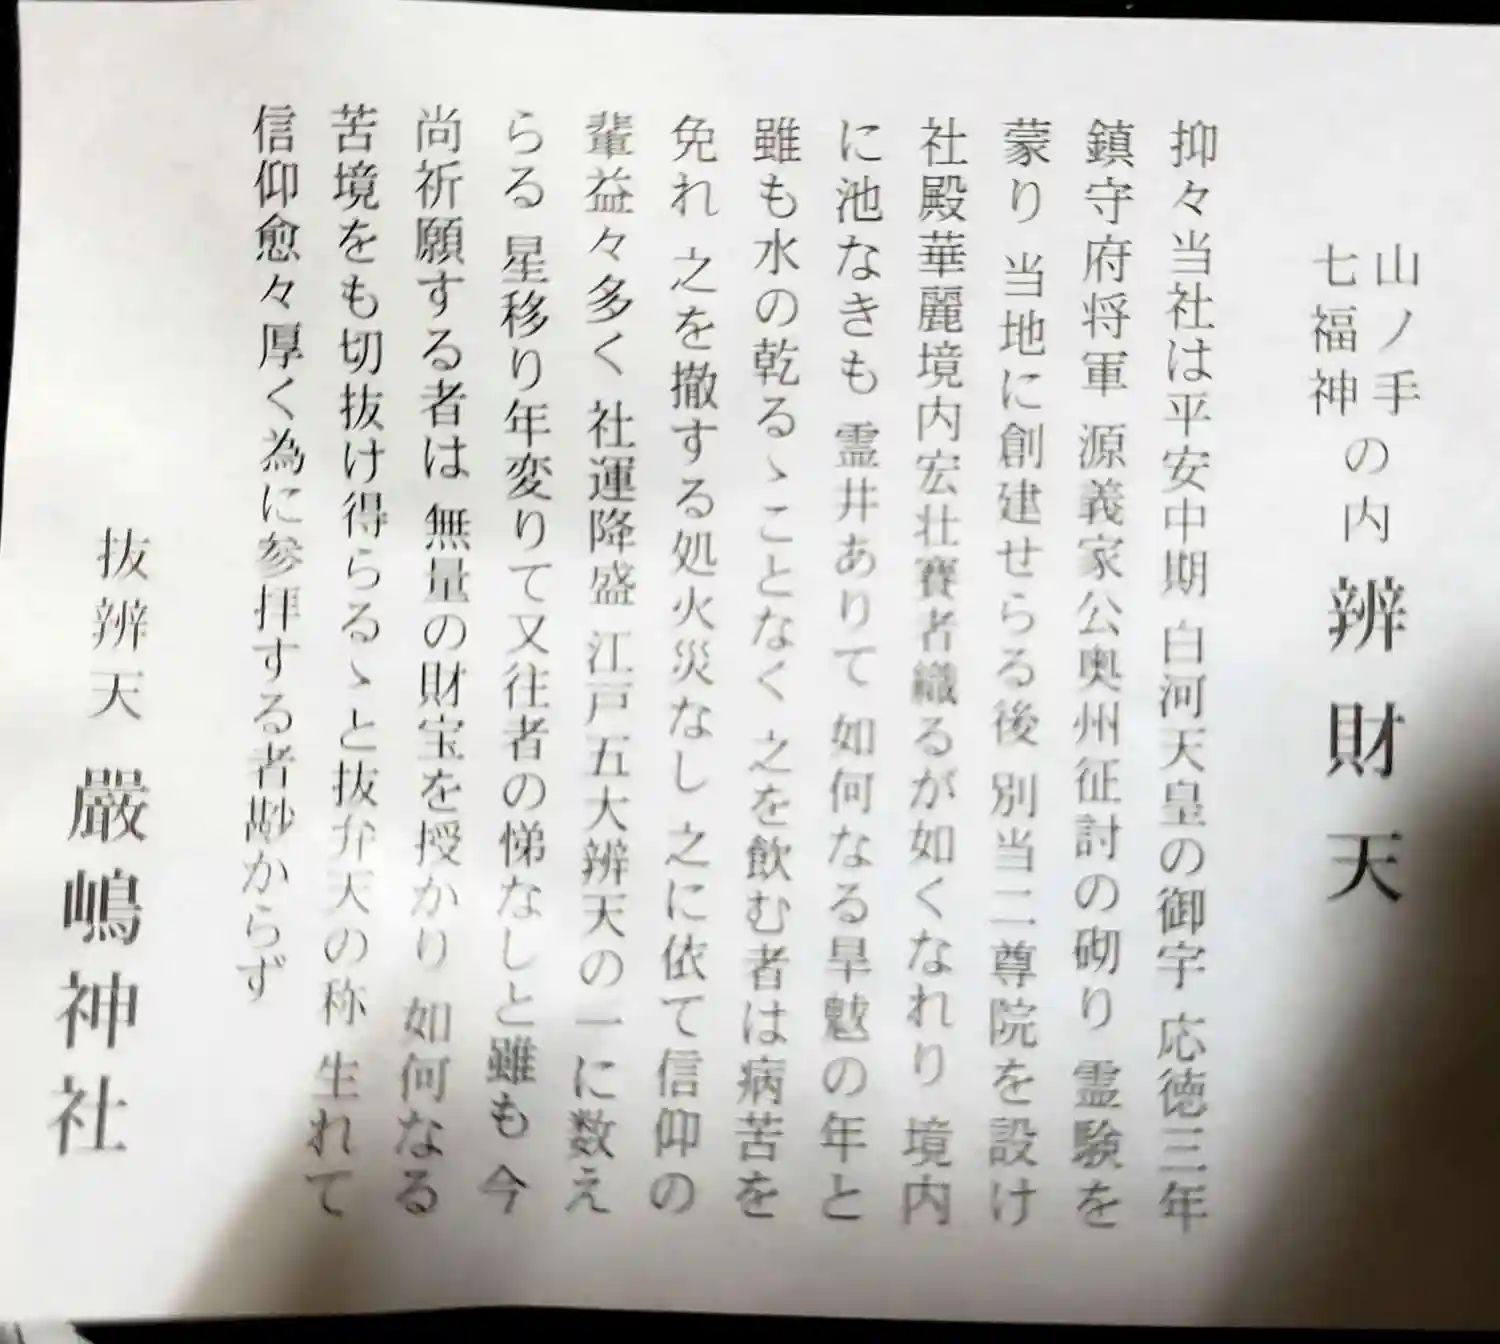 山ノ手
七福神の内 辨財天
抑々当社は平安中期 白河天皇の御宇 応徳三年
鎮守府将軍 源義家公奥州征討の砌り 霊験を
蒙り 当地に創建せらる後 別当二尊院を設け
社殿華麗境内宏壮賽者織るが如くなれり 境内
に池なきも 霊井ありて 如何なる旱魃の年と
雖も水の乾るゝことなく 之を飲む者は病苦を
免れ 之を撤する処火災なし 之に依て信仰の
輩益々多く 社運降盛 江戸五大辨天の一に数え
らる 星移り年変りて又往者の悌なしと雖も 今
尚祈願する者は 無量の財宝を授かり 如何なる
苦境をも切抜け得らるゝと抜弁天の称 生れて
信仰愈々厚く為に参拝する者尠からず
抜辨天 嚴嶋神社